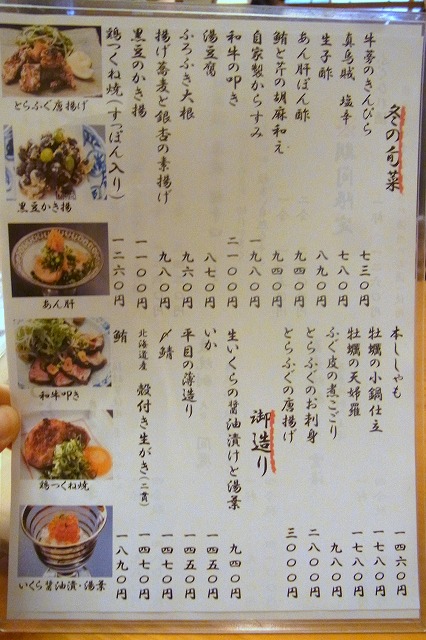 冬の旬菜
牛蒡のきんぴら 七三〇円
真烏賊 塩辛 七八〇円
生子酢 八九〇円
あん肝ぽん酢 九四〇円
鮪と芹の胡麻和え 九四〇円
自家製からすみ 一九八〇円
和牛の叩き 二一〇〇円
湯豆腐 八七〇円
ふろふき大根 九六〇円
揚げ蕎麦と銀杏の素揚げ 九八〇円
黒豆のかき揚 一一〇〇円
鶏つくね焼(すっぽん入り) 一二六〇円
本ししゃも 一四六〇円
牡蠣の小鍋仕立 一七八〇円
牡蠣の天婦羅 一七八〇円
ふぐ皮の煮こごり 九八〇円
とらふぐのお刺身 二八〇〇円
とらふぐの唐揚げ 三〇〇〇円
御造り
生いくらの醤油漬けと湯葉 九四〇円
いか 一四五〇円
平目の薄造り 一四五〇円
〆鯖 一四七〇円
北海道産 殻付き生がき(二貫) 一四七〇円
鮪 一八九〇円
とらふぐ唐揚げ
黒豆かき揚
あん肝
和牛叩き
鶏つくね焼
いくら醤油漬・湯葉